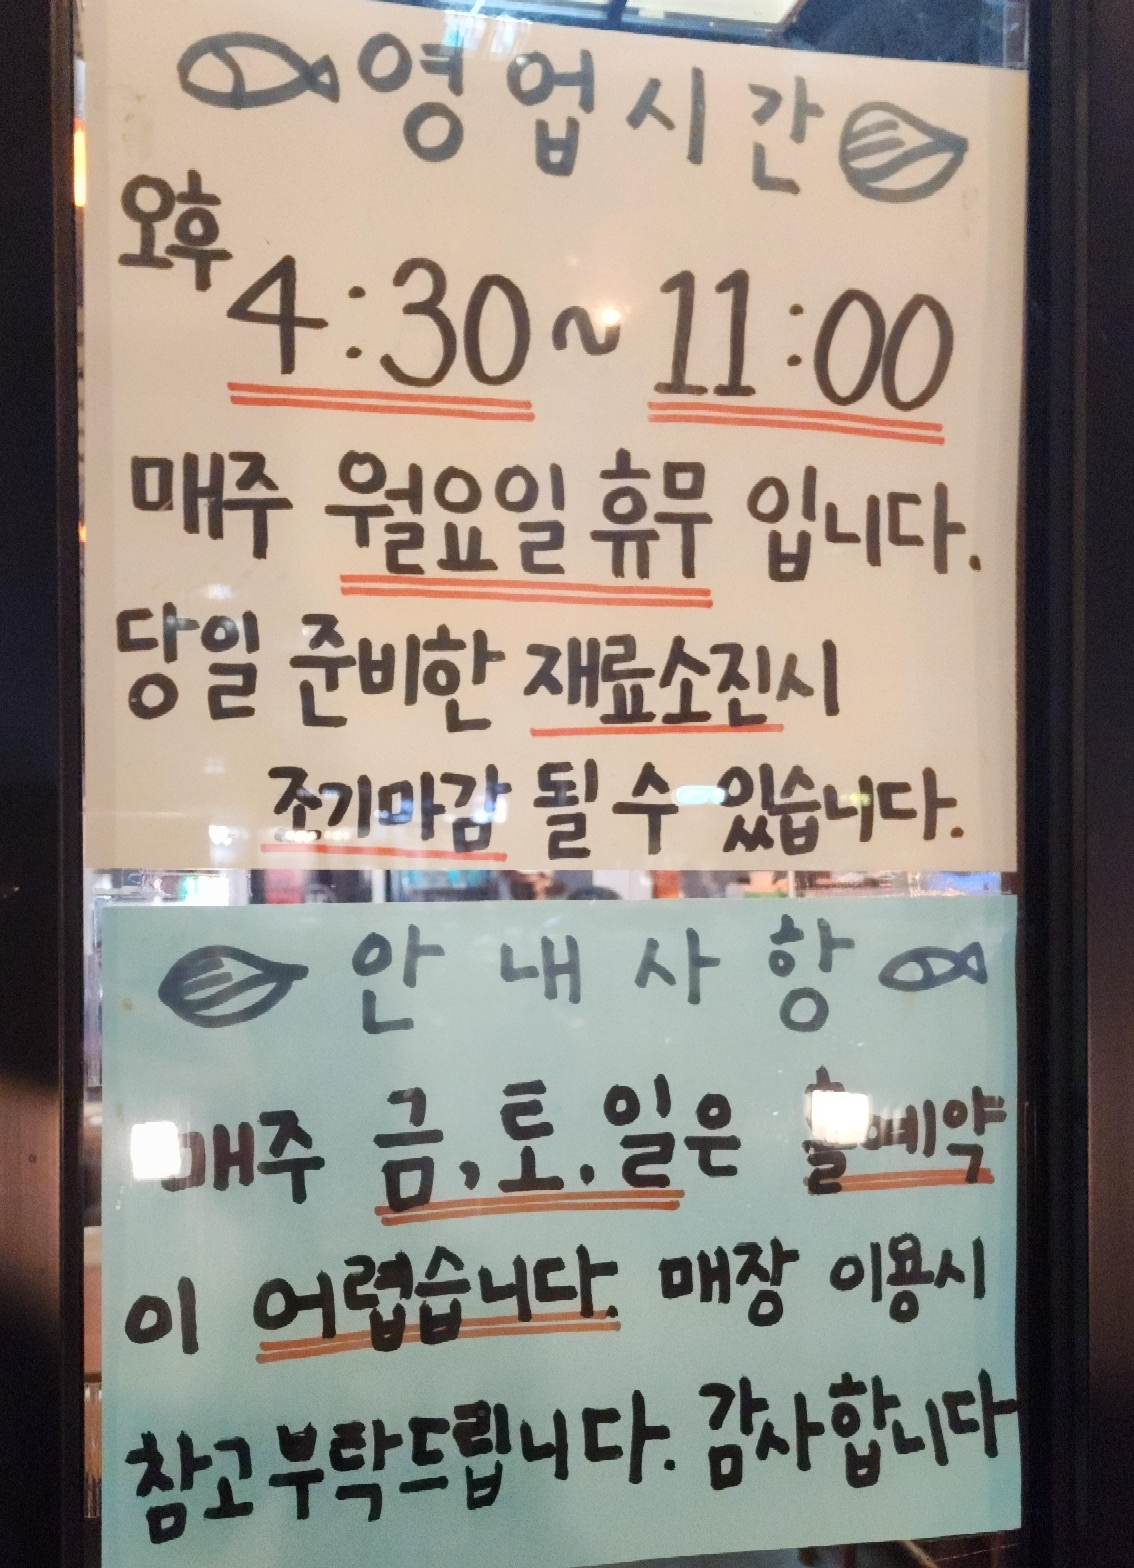 영업시간
오후
4:30 ~ 11:00
매주 월요일 휴무 입니다.
당일 준비한 재료소진시
조기마감 될 수 있습니다.
안내사항
매주 금, 토, 일은 홀예약
이 어렵습니다. 매장 이용시
참고부탁드립니다. 감사합니다